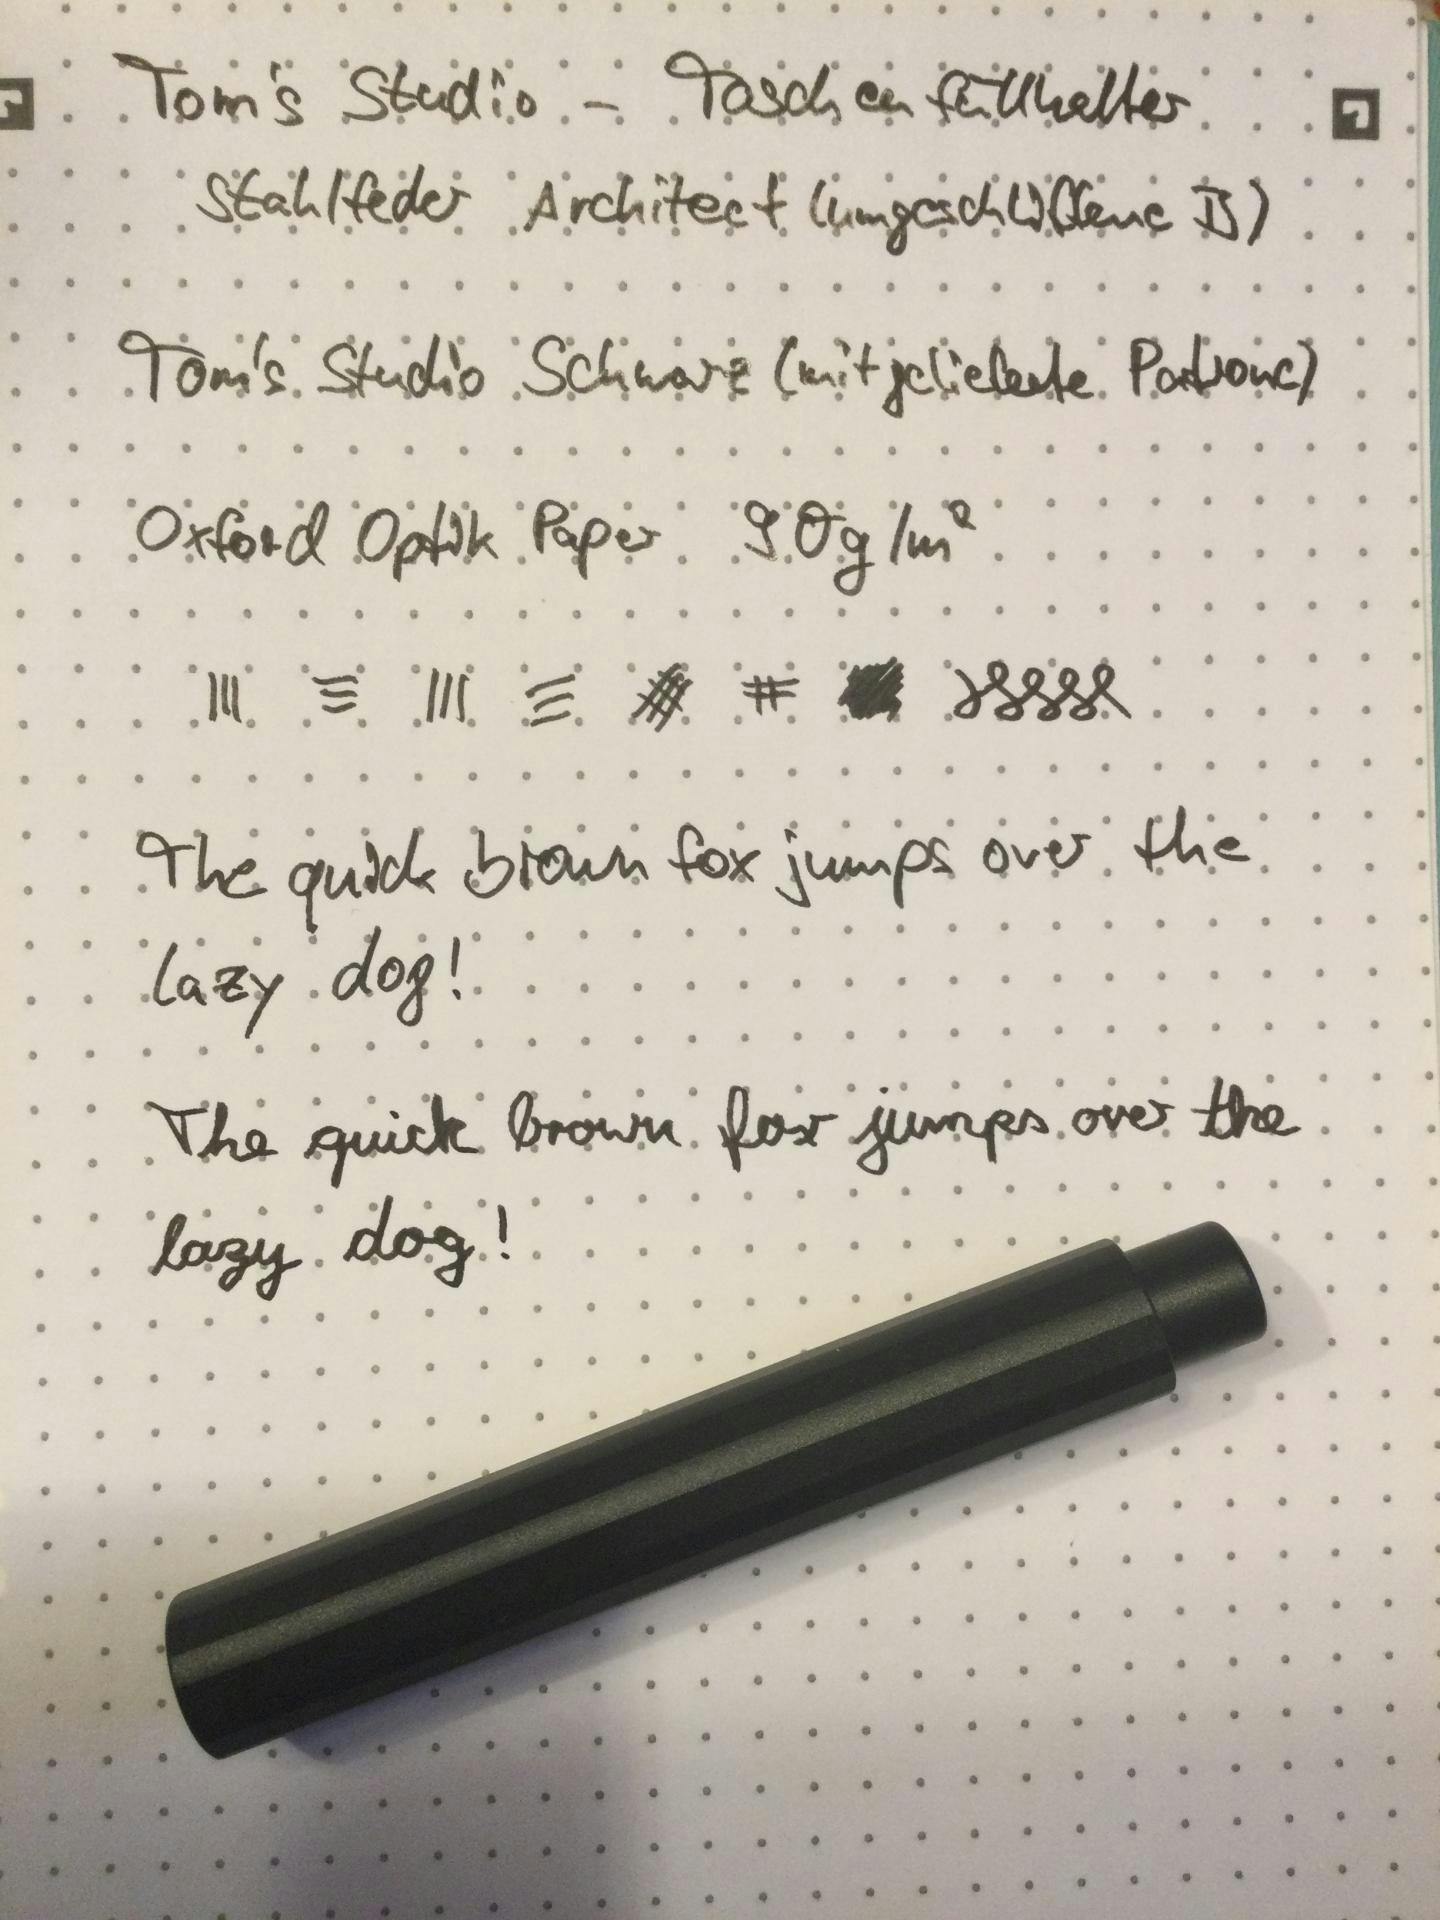 Tom's Studio - Taschenfüllhalter
Stahlfeder Architect (umgeschliffene B)
Tom's Studio Schwarz (mitgelieferte Patrone)
Oxford Optik Paper 90g/m²
The quick brown fox jumps over the
lazy dog!
The quick brown fox jumps over the
lazy dog!